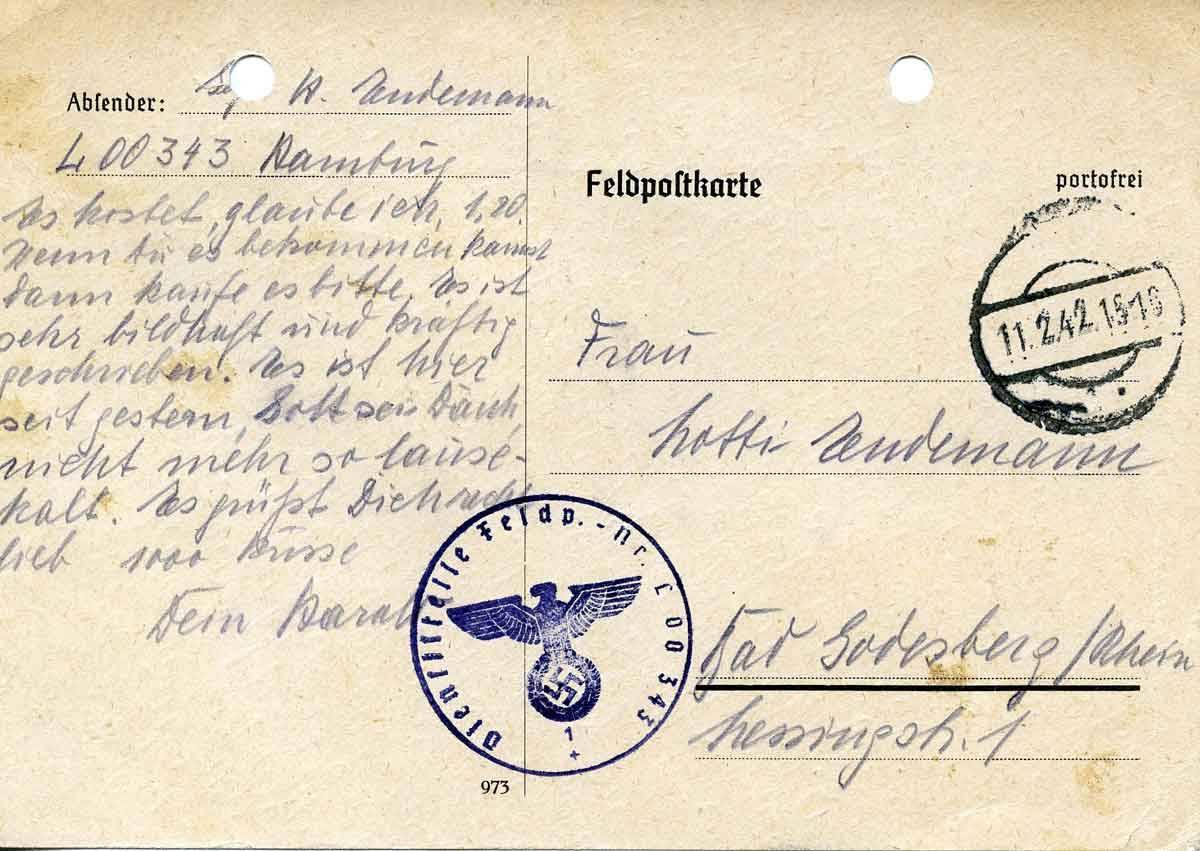 Absender: K. Endemann
L 00343 Hamburg
Es kostet, glaube ich, 1,20.
Wenn Du es bekommen kannst
dann kaufe es bitte. Es ist
sehr bildhaft und kräftig
geschrieben. Es ist hier
seit gestern, Gott sei Dank,
nicht mehr so lause-
kalt. Es grüßt Dich recht
lieb 1000 Küsse
Dein
Feldpostkarte
portofrei
11.2.42.
Frau
Lotti Endemann
Bad Godesberg/Rhein
Lessingstr. 1
Dienststelle Feldp.-Nr. L 00343
1
973